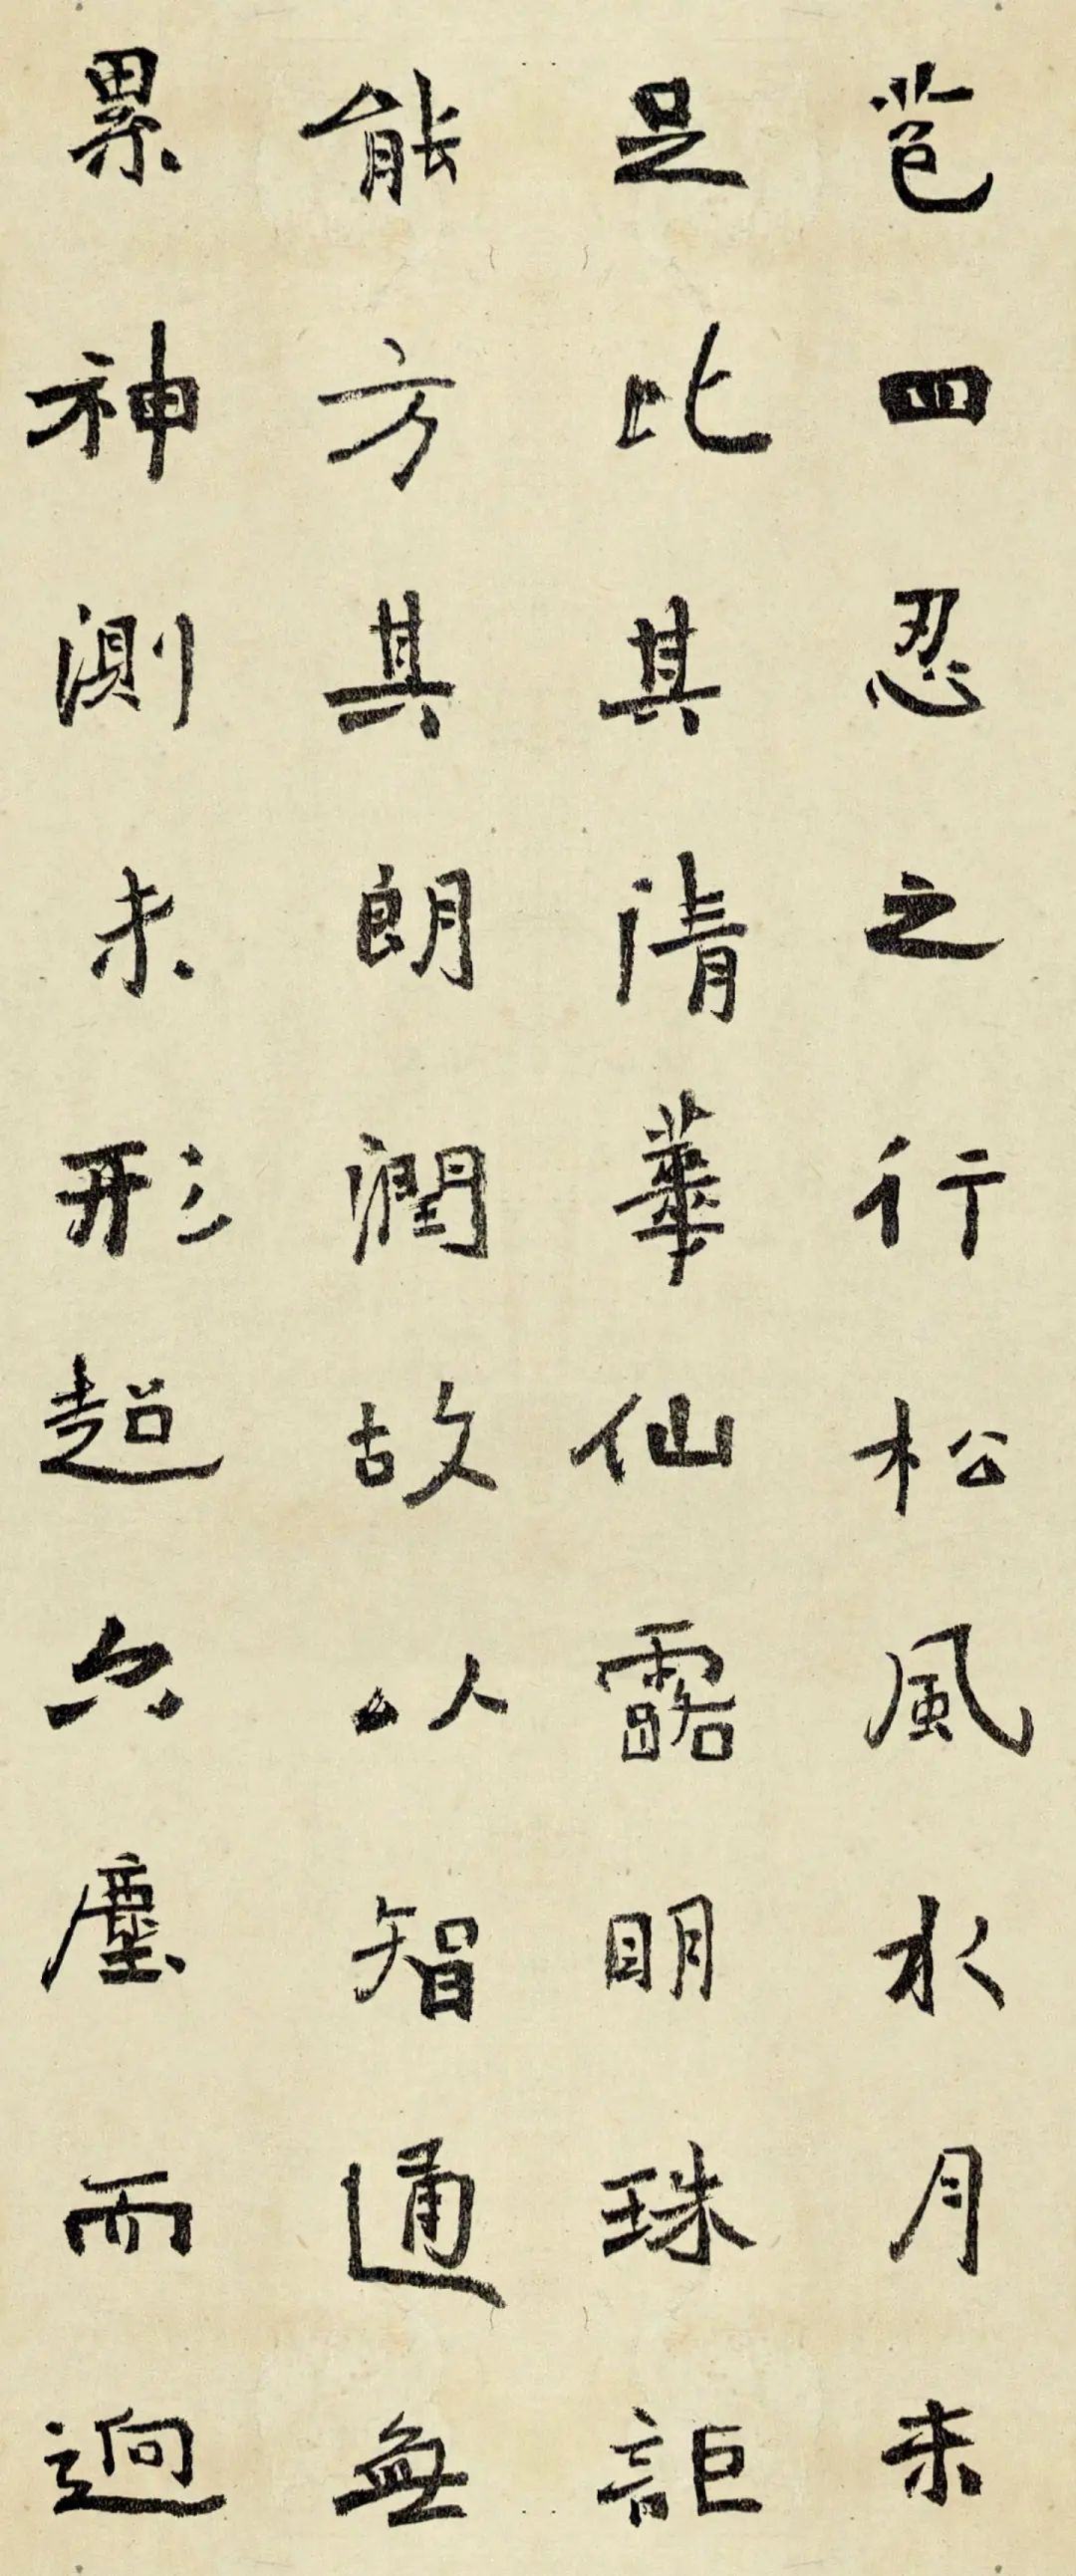 苞四忍之行松風水月未
足比其清華仙露明珠詎
能方其朗潤故以智通無
累神測未形超六塵而迥